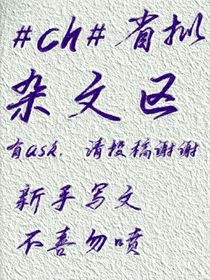 #ch# 省拟
杂文区
有ask，请投稿谢谢
新手写文
不喜勿喷